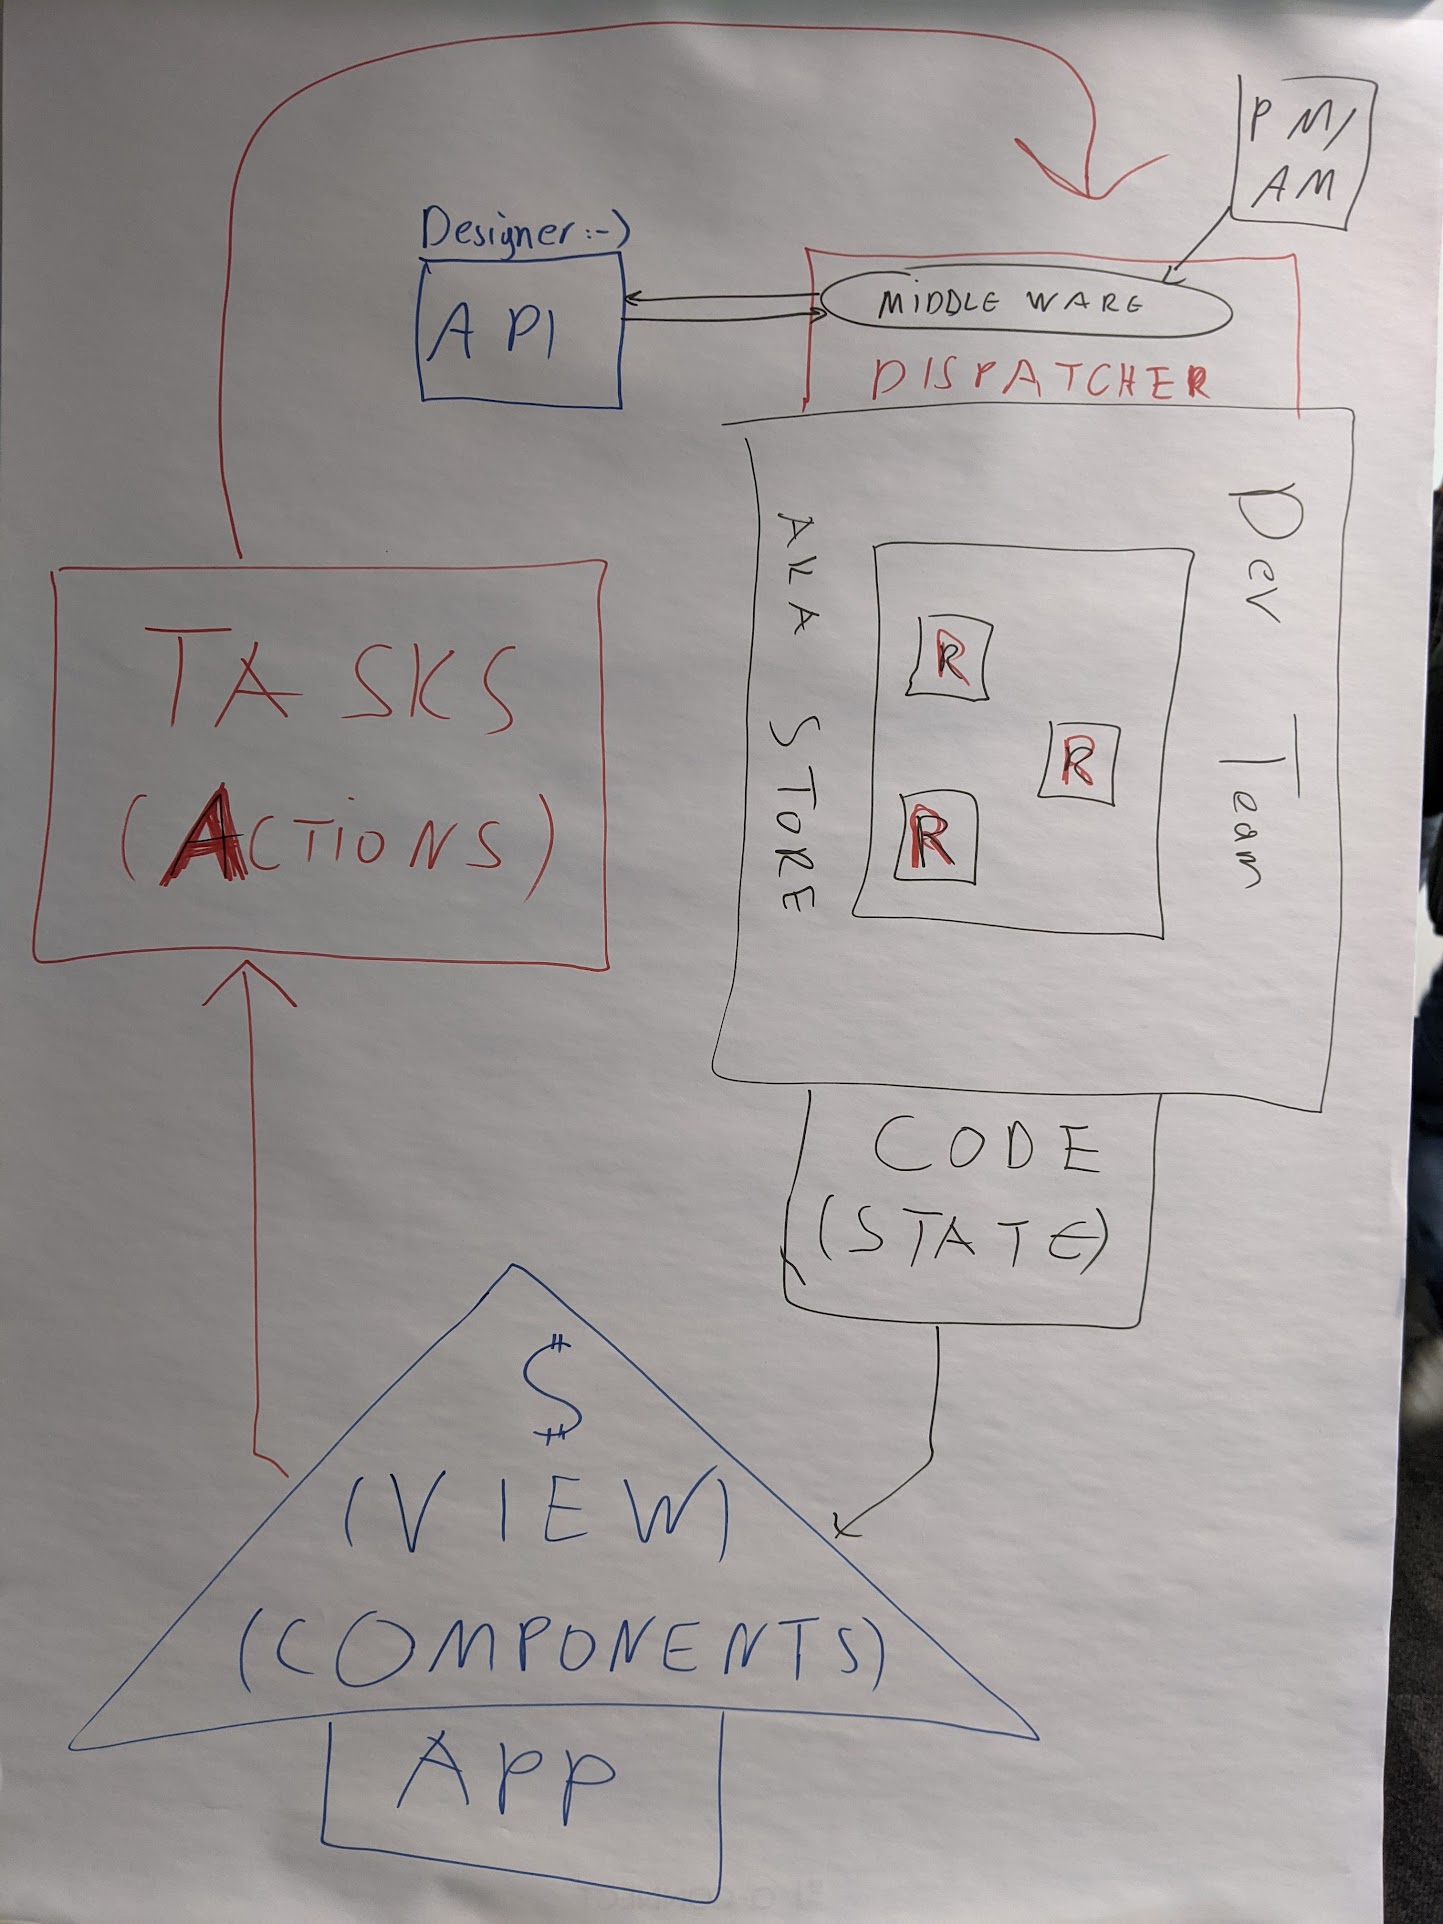 PM/
AM
Designer :-)
API
MIDDLE WARE
DISPATCHER
Dev Team
AKA STORE
R
R
R
TASKS
(ACTIONS)
CODE
(STATE)
$
(VIEW)
(COMPONENTS)
APP